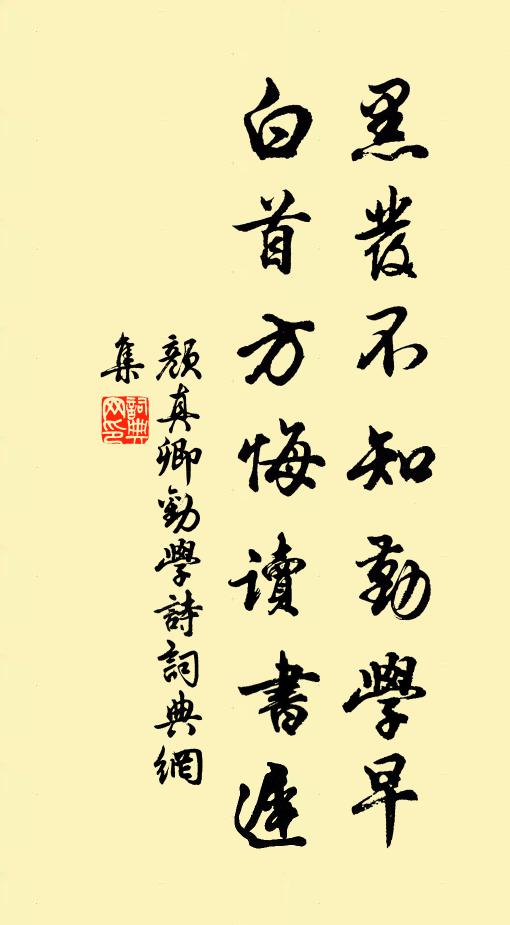 黑發不知勤學早
白首方悔讀書遲
顏真卿勸學詩詞典網
集
詞典網印